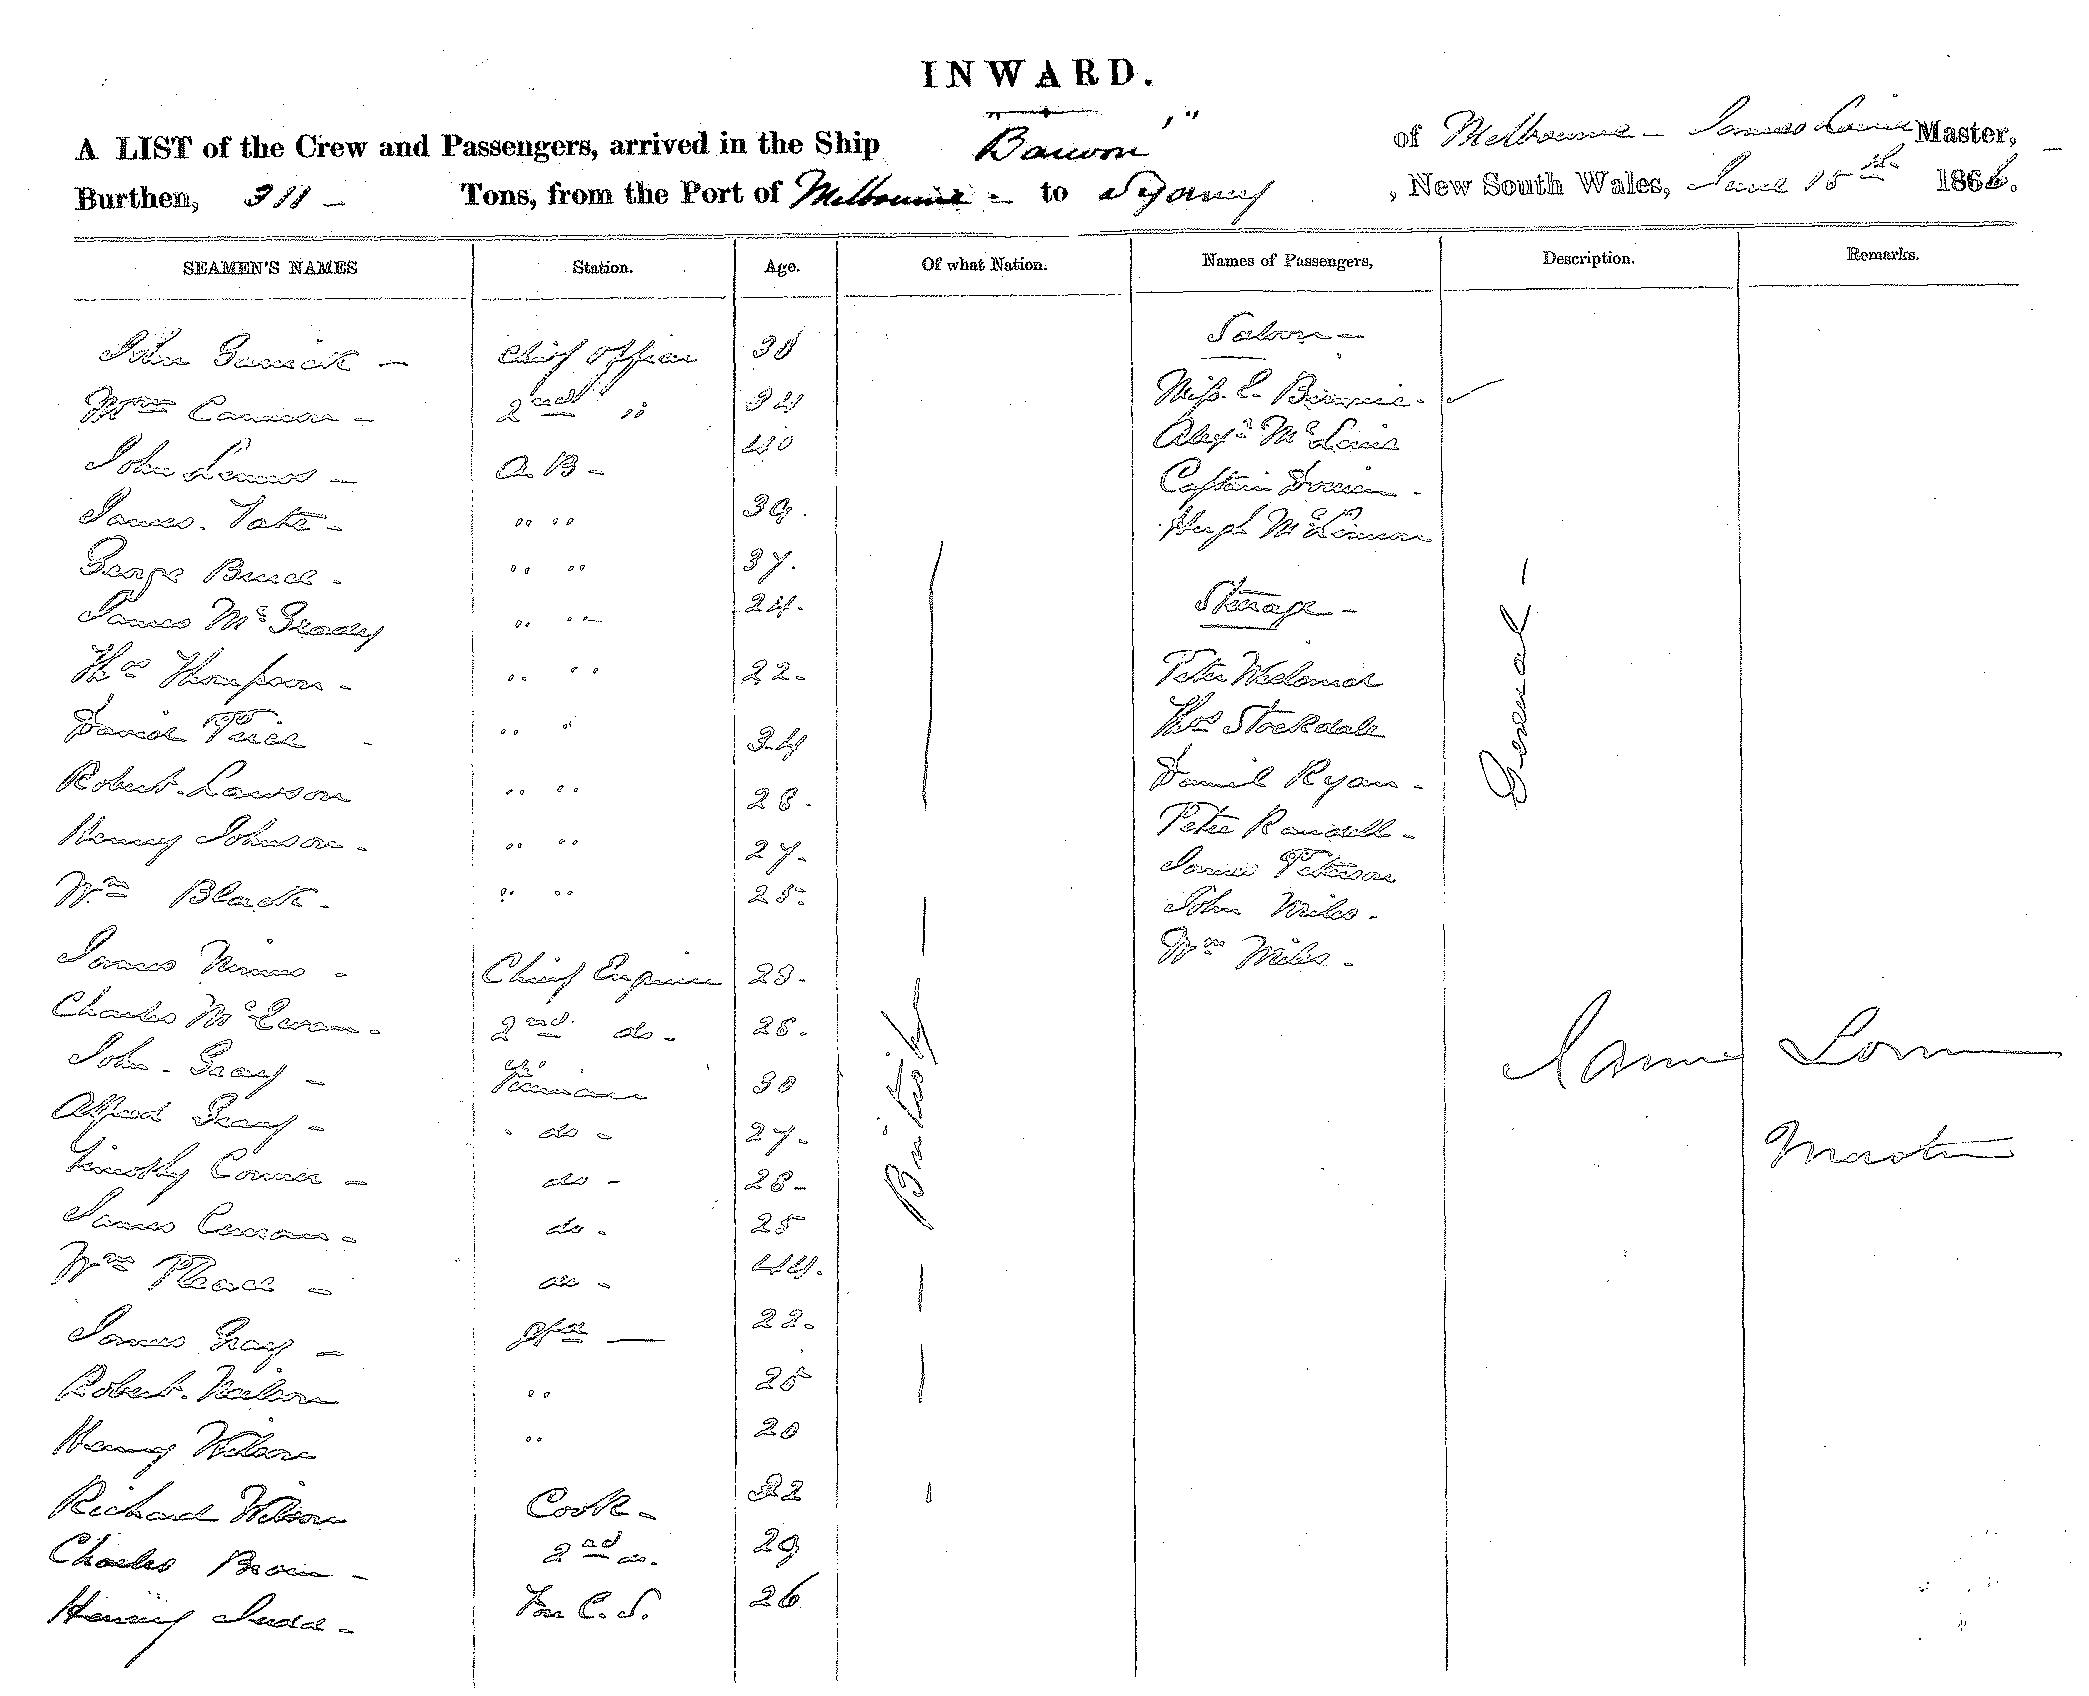 INWARD.
A LIST of the Crew and Passengers, arrived in the Ship "Barwon" of Melbourne - James Master,
Burthen, 311 - Tons, from the Port of Melbourne - to Sydney, New South Wales, June 15th 1866.
SEAMEN'S NAMES Station. Age. Of what Nation. Names of Passengers, Description. Remarks.
Saloon -
John - Chief Officer 38
Wm Cannon - 2nd " 34
Miss E. Birnie. -
John - A. B - 40
Alexr McLane
Captain
James. Tate - " " 39.
Hugh McLennan
George Bruce - " " 37.
James McGrady " " 24.
Steerage -
Thos Thompson - " " 22 -
Peter
David Price - " " 34
Thos Stockdale
Robert. Lawson " " 28.
Daniel Ryan -
Henry Johnson - " " 27 -
Peter Randell -
James Peterson
Wm Black - " " 25.
John Miles -
Wm Miles -
General -
James Nimmo - Chief Engineer 23.
Charles McEwan - 2nd do - 26.
John - Gray - Fireman 30
James
Master
Alfred Gray - " do - 27 -
Timothy Connor - do - 28 -
James Curran - do - 25
Wm Peace - do - 44.
British
James Gray - 22 -
Robert. Neilson " 25
Henry Wilson " 20
Richard Wilson Cook - 22
Charles Brown - 2nd do. 29
Henry Judd - For C. S. 26